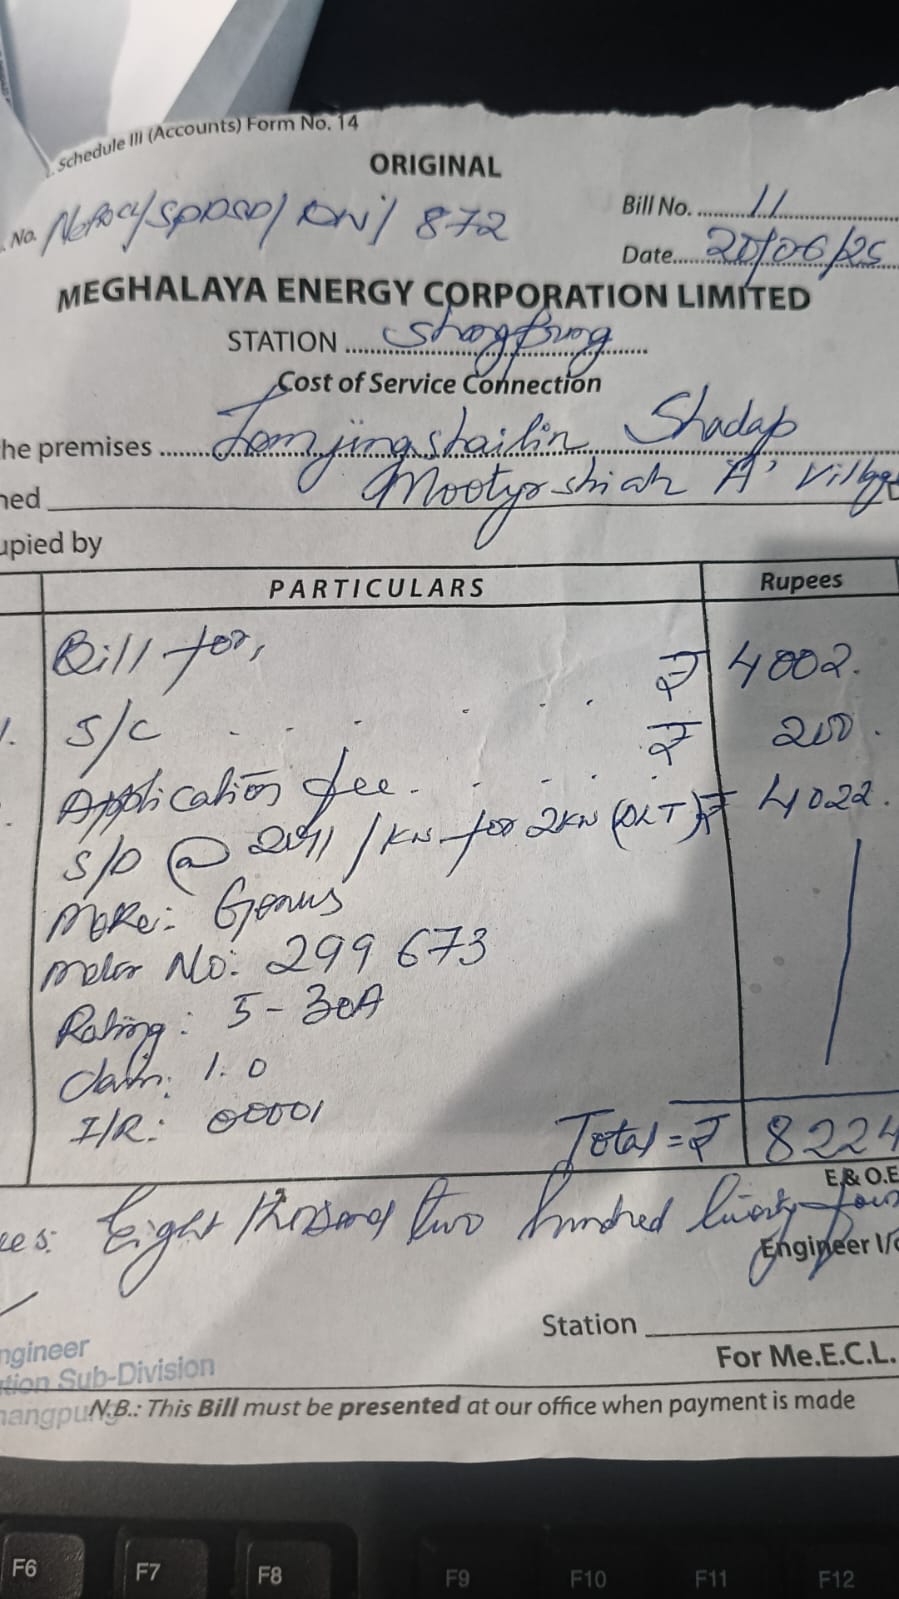 Schedule III (Accounts) Form No. 14
ORIGINAL
No. 872
Bill No. 11
Date 20/06/25
MEGHALAYA ENERGY CORPORATION LIMITED
STATION
Cost of Service Connection
he premises Shadap
ned 'A' Village
upied by
PARTICULARS Rupees
Bill for,
S/C ₹ 4002.
Application fee. ₹ 200.
S/D @ 2011/KW for 2KW (DLT) ₹ 4022.
Make: Genus
Meter No: 299673
Rating: 5-30A
Class: 1.0
I/R: 00001
Total = ₹ 8224
E.& O.E
es: Eight thousand two hundred twenty four
Engineer I/c
Station
ngineer
tion Sub-Division
For Me.E.C.L.
hangpung
N.B.: This Bill must be presented at our office when payment is made
F6 F7 F8 F9 F10 F11 F12